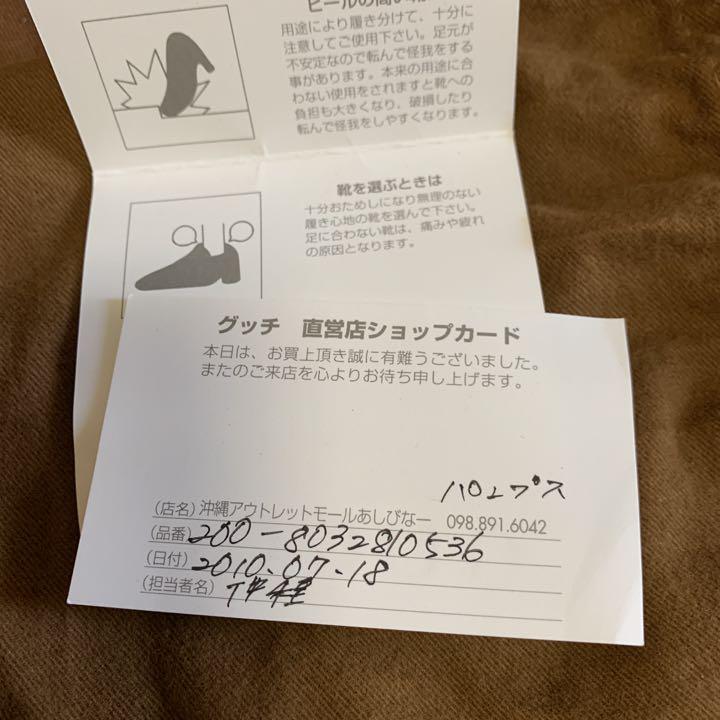 ヒールの高い靴
用途により履き分けて、十分に
注意してご使用下さい。足元が
不安定なので転んで怪我をする
事があります。本来の用途に合
わない使用をされますと靴への
負担も大きくなり、破損したり
転んで怪我をしやすくなります。
靴を選ぶときは
十分おためしになり無理のない
履き心地の靴を選んで下さい。
足に合わない靴は、痛みや疲れ
の原因となります。
グッチ 直営店ショップカード
本日は、お買上頂き誠に有難うございました。
またのご来店を心よりお待ち申し上げます。
パンプス
(店名) 沖縄アウトレットモールあしびなー 098.891.6042
(品番) 200-8032810536
(日付) 2010.07.18
(担当者名)